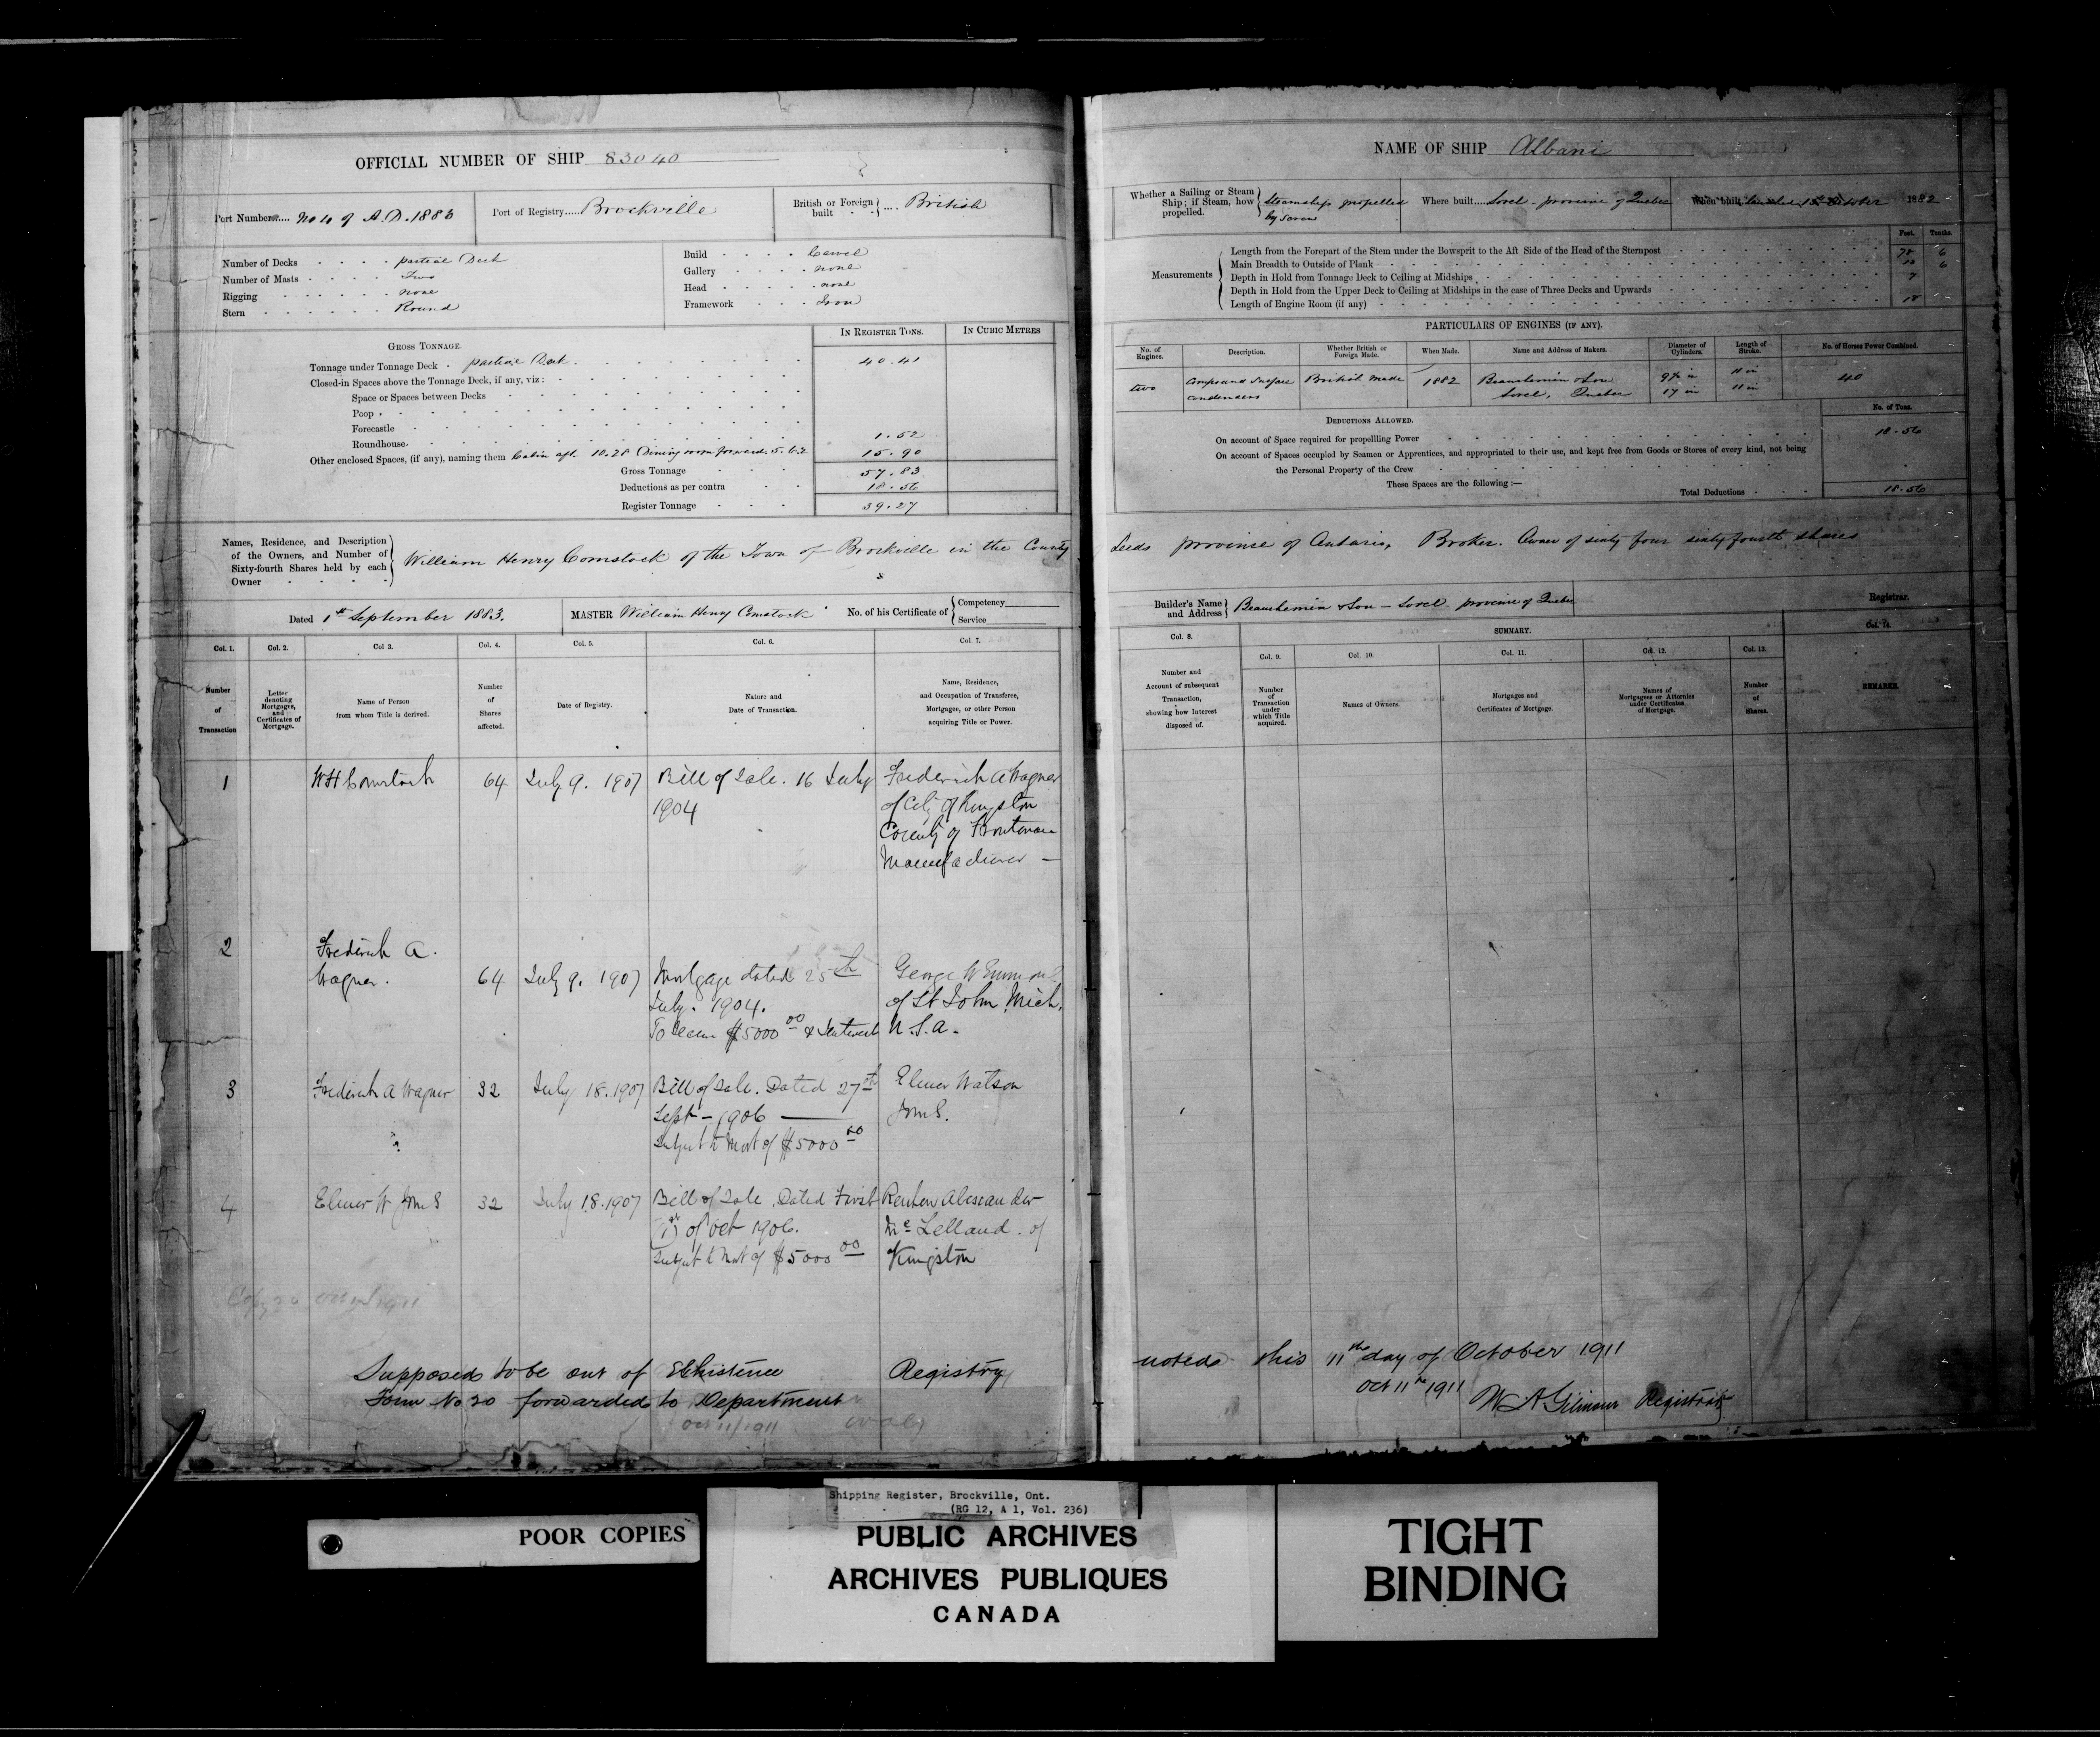 OFFICIAL NUMBER OF SHIP 83040
Port Number No 4 of A.D. 1883
Port of Registry Brockville
British or Foreign built British
Number of Decks partial Deck
Number of Masts Two
Rigging none
Stern Round
Build Carvel
Gallery none
Head none
Framework Iron
GROSS TONNAGE.
IN REGISTER TONS.
IN CUBIC METRES
Tonnage under Tonnage Deck partial Deck 40.41
Closed-in Spaces above the Tonnage Deck, if any, viz:
Space or Spaces between Decks
Poop
Forecastle
Roundhouse. 1.52
Other enclosed Spaces, (if any), naming them Cabin aft 10.28 Dining room forward 5.62 15.90
Gross Tonnage 57.83
Deductions as per contra 18.56
Register Tonnage 39.27
Names, Residence, and Description
of the Owners, and Number of
Sixty-fourth Shares held by each
Owner
William Henry Comstock of the Town of Brockville in the County
Dated 1st September 1883.
MASTER William Henry Comstock
No. of his Certificate of Competency
Service
Col. 1. Col. 2. Col 3. Col. 4. Col. 5. Col. 6. Col 7.
Number of Transaction
Letter denoting Mortgages, and Certificates of Mortgage.
Name of Person from whom Title is derived.
Number of Shares affected.
Date of Registry.
Nature and Date of Transaction.
Name, Residence, and Occupation of Transferee, Mortgagee, or other Person acquiring Title or Power.
1 W H Comstock 64 July 9. 1907 Bill of Sale. 16 July Frederick A Wagner
1904 of City of Kingston
County of Frontenac
Manufacturer —
2 Frederick A.
Wagner. 64 July 9. 1907 Mortgage dated 25th George W
July. 1904. of St John Mich.
To secure $5000 00 & Interest U.S.A.
3 Frederick A Wagner 32 July 18. 1907 Bill of Sale. Dated 27th Elmer Watson
Sept - 1906
Subject to Mort of $5000 00
4 Elmer W 32 July 18. 1907 Bill of Sale Dated First Reuben Alexander
(1st) of Oct 1906. McLelland. of
Subject to Mort of $5000 00 Kingston
1911
Supposed to be out of Exhistence Registry
Form No 20 forwarded to Department
Oct 11/1911
NAME OF SHIP Albani
Whether a Sailing or Steam
Ship; if Steam, how
propelled.
Steamship propelled
by Screw
Where built Sorel - province of Quebec
When built launched October 1882
Measurements
Feet. Tenths.
Length from the Forepart of the Stem under the Bowsprit to the Aft Side of the Head of the Sternpost 6
Main Breadth to Outside of Plank 6
Depth in Hold from Tonnage Deck to Ceiling at Midships 7
Depth in Hold from the Upper Deck to Ceiling at Midships in the case of Three Decks and Upwards
Length of Engine Room (if any) 18
PARTICULARS OF ENGINES (IF ANY).
No. of Engines.
Description.
Whether British or Foreign Made.
When Made.
Name and Address of Makers.
Diameter of Cylinders.
Length of Stroke.
No. of Horses Power Combined.
two Compound Surface British made 1882 Beauchemin & Son 11 in 40
condensers Sorel, Quebec 17 in 11 in
DEDUCTIONS ALLOWED.
No. of Tons.
On account of Space required for propelling Power 18.56
On account of Spaces occupied by Seamen or Apprentices, and appropriated to their use, and kept free from Goods or Stores of every kind, not being
the Personal Property of the Crew
These Spaces are the following :—
Total Deductions 18.56
Leeds province of Ontario, Broker. Owner of sixty four sixty fourth shares
Builder's Name
and Address
Beauchemin & Son - Sorel - province of Quebec
Registrar.
SUMMARY.
Col. 8. Col. 9. Col. 10. Col. 11. Col. 12. Col. 13. Col. 14.
Number and Account of subsequent Transaction, showing how Interest disposed of.
Number of Transaction under which Title acquired.
Names of Owners.
Mortgages and Certificates of Mortgage.
Names of Mortgagees or Attornies under Certificates of Mortgage.
Number of Shares.
REMARKS.
noted this 11th day of October 1911
Oct 11th 1911
W A Gilmour Registrar
Shipping Register, Brockville, Ont.
(RG 12, A 1, Vol. 236)
POOR COPIES
PUBLIC ARCHIVES
ARCHIVES PUBLIQUES
CANADA
TIGHT
BINDING